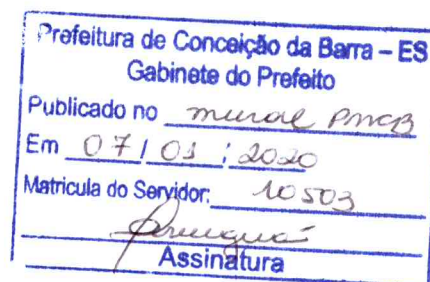 Prefeitura de Conceição da Barra – ES
Gabinete do Prefeito
Publicado no mural PMCB
Em 07 / 01 / 2020
Matricula do Servidor: 10503
Assinatura